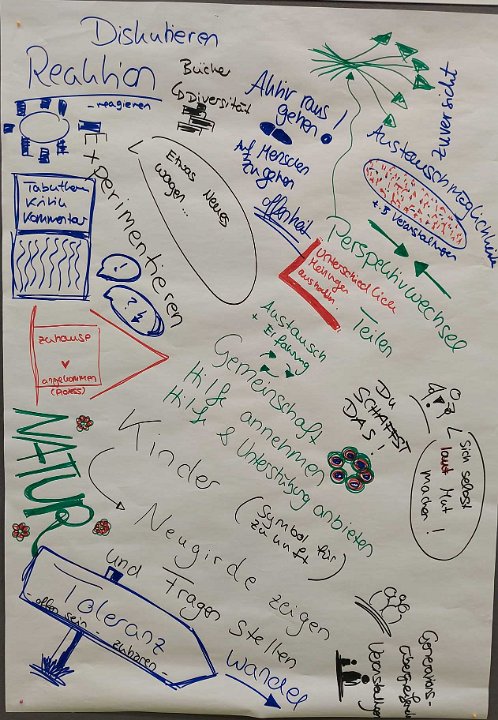 Diskutieren
Reaktion
- reagieren
Bücher
↳ Diversität
Aktiv raus
gehen!
Auf Menschen
zu gehen
offenheit
Zuversicht
Austauschmöglichkeit
+ 3 Veranstaltungen
Experimentieren
Tabuthem
Kritik
Kommentar
Etwas Neues
wagen...
!
?
Perspektivwechsel
Unterschiedlich
Meinungen
Teilen
Austausch
+ Erfahrung
zuhause
angekommen
(Prozess)
Gemeinschaft
Hilfe annehmen
Hilfe & Unterstützung anbieten
Du
SCHAFFST
DAS!
Sich selbst
laut Mut
machen!
NATUR
Kinder
(Symbol für
Zukunft)
Neugirde zeigen
und Fragen stellen
Toleranz
- offen sein - zuhören -
Wandel
Generations-
übergreifend